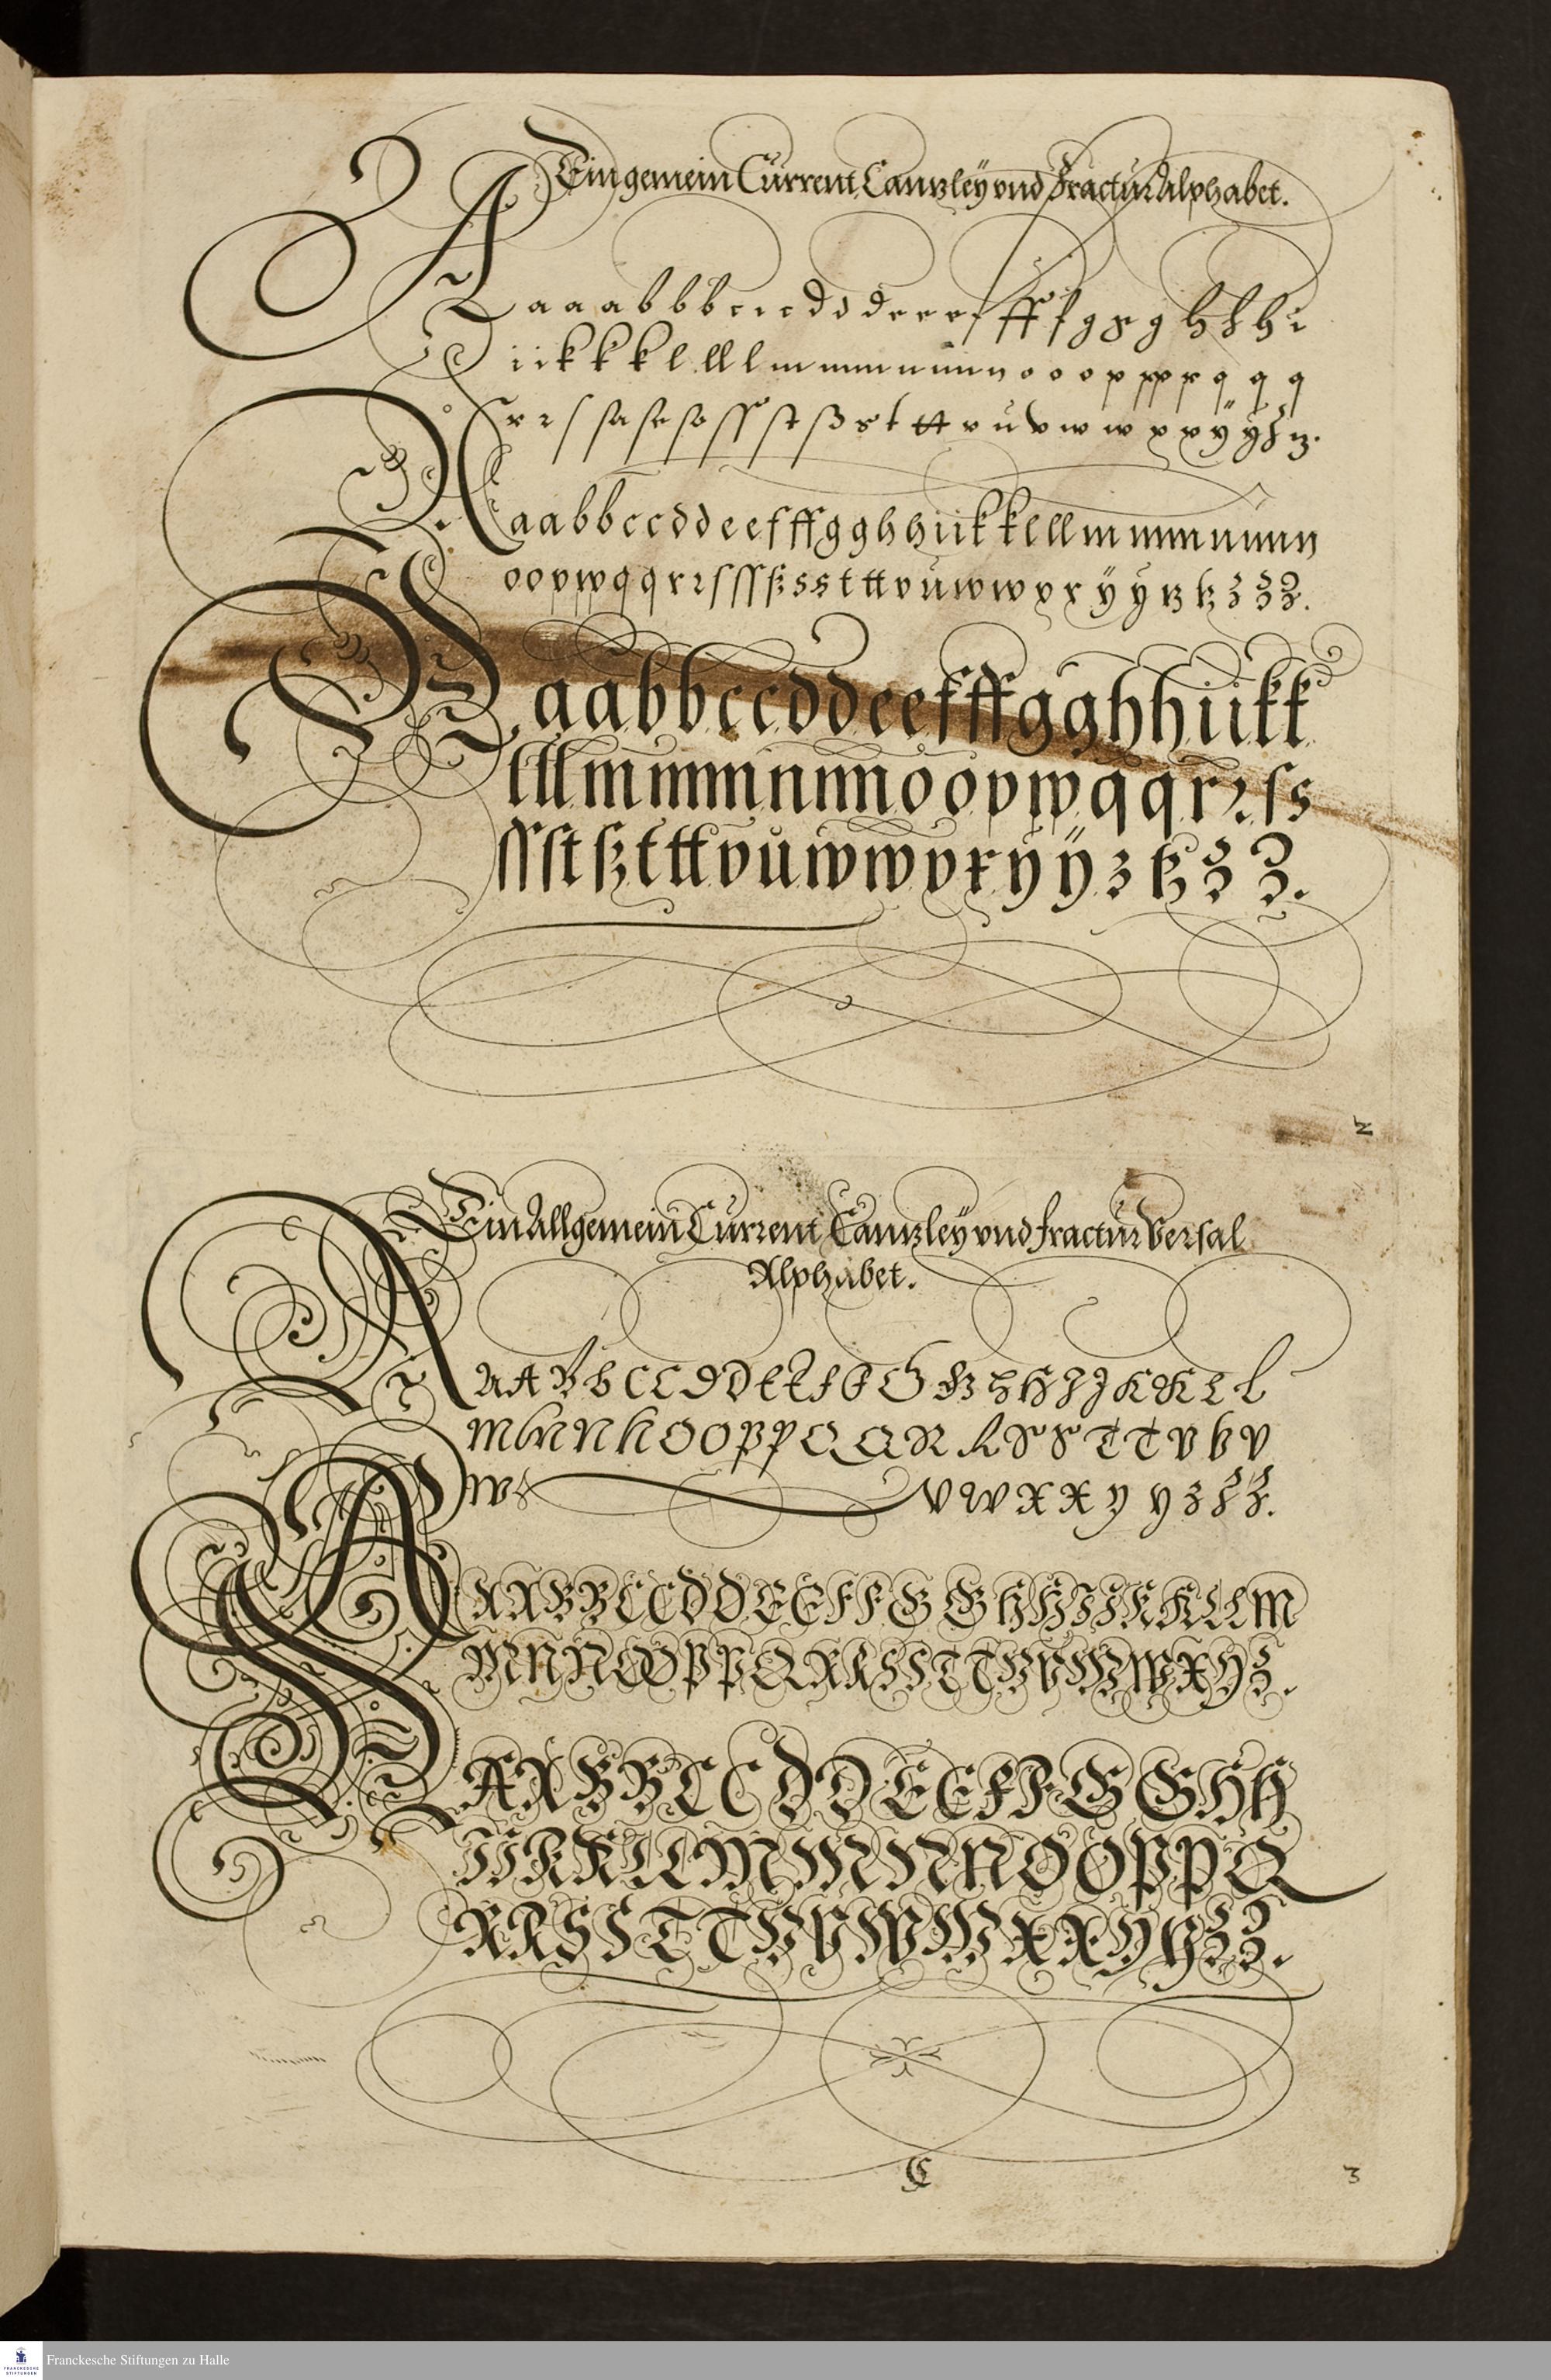 Ein gemein Current Cantzleÿ vnd Fractur Alphabet.
A a a a b b b c c c d d d e e e f ff f g g g h h h i
i i k k k l ll l m mm n nn n o o o p pp p q q q
r r s sa se so ss st ß s t tt v u v w w x x y ÿ z tz.
A a a b b c c d d e e f ff g g h h i i k k l ll m mm n nn n
o o p pp q q r r s ss ß s s t tt v ů w w x x ÿ y tz tz z z z.
A a a b b c c d d e e f ff g g h h i i k k
l ll m mm n nn o o p pp q q r r s s
ss st ß t tt v ů w w x x y ÿ z tz z z.
2
Ein Allgemein Current Cantzleÿ vnd Fractur Versal
Alphabet.
A A A B B C C D D E E F F G G H H I I K K L L
M M N N O O P P Q Q R R S S T T V V V
W V W X X Y Y Z Z Z.
A A A B B C C D D E E F F G G H H I I K K L L M
M N N O O P P Q R R S S T T V V W W X Y Z.
A A A B B C C D D E E F F G G H H
I I K K L L M M N N O O P P Q
R R S S T T V V W W X X Y Y Z Z.
C
3
Franckesche Stiftungen zu Halle
FRANCKESCHE
STIFTUNGEN